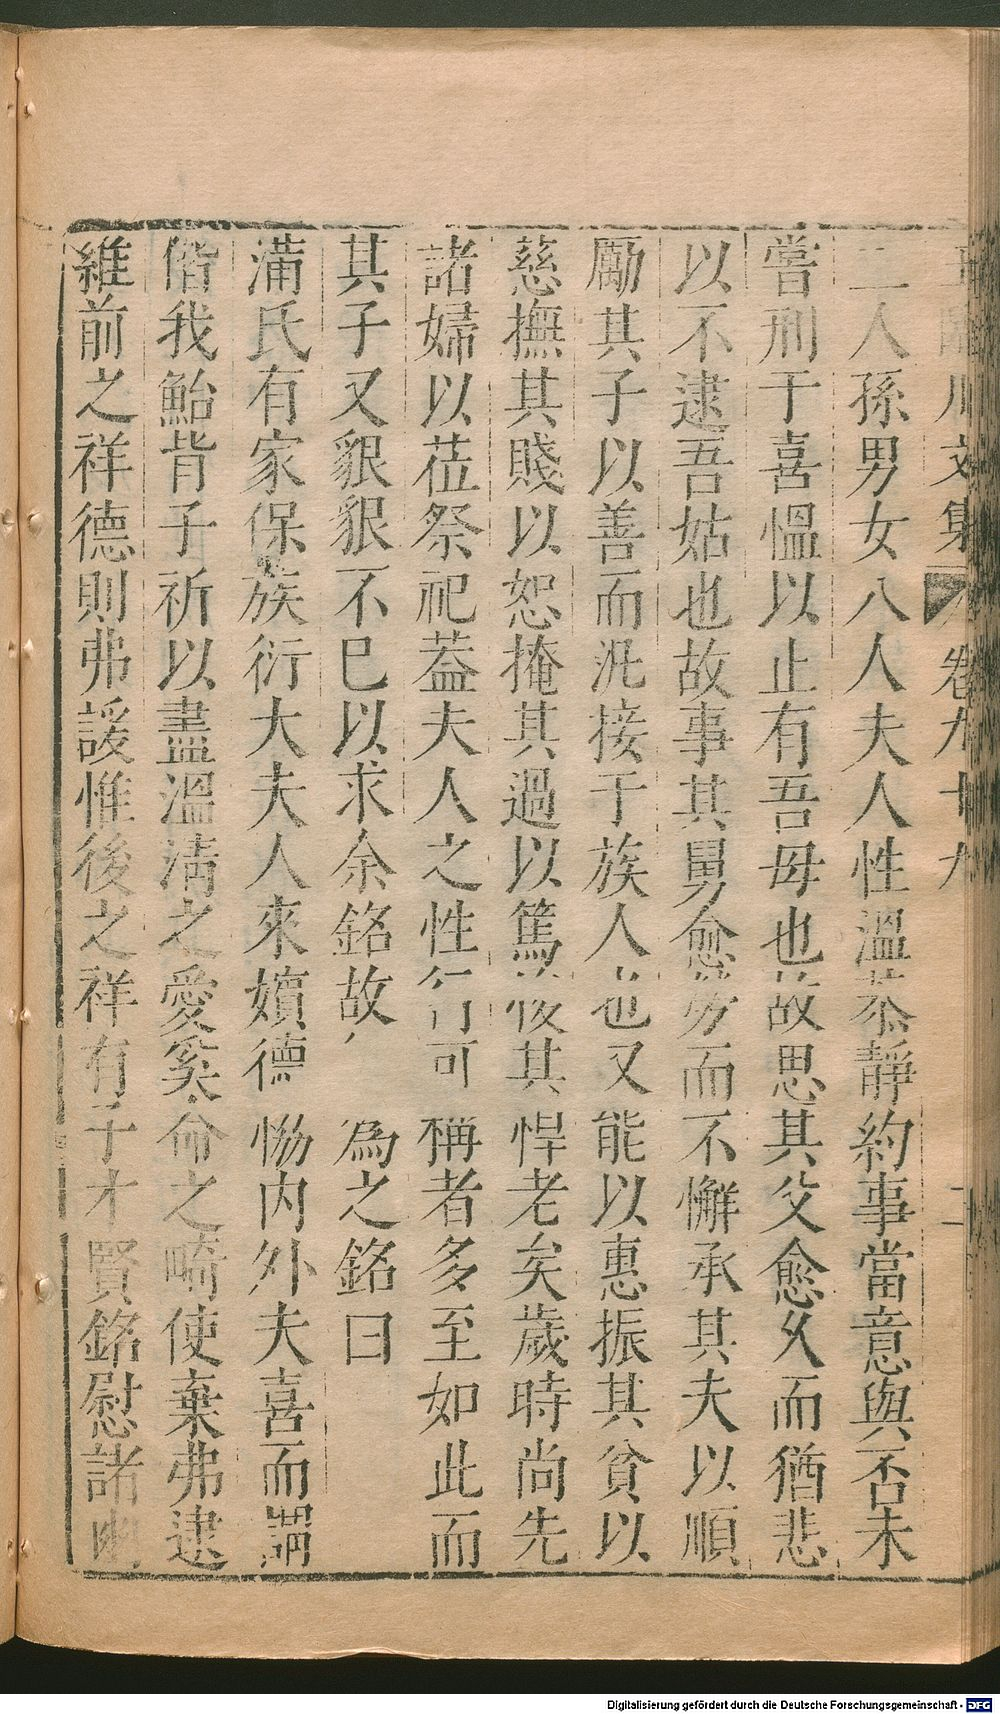 川文集 卷九十九 二
二人孫男女八人夫人性溫恭靜約事當意與否未
嘗刑于喜慍以止有吾母也故思其父愈久而猶悲
以不逮吾姑也故事其舅愈勞而不懈承其夫以順
勵其子以善而汎接于族人也又能以惠振其貧以
慈撫其賤以恕掩其過以篤 其悍老矣歲時尚先
諸婦以莅祭祀葢夫人之性行可稱者多至如此而
其子又貇貇不巳以求余銘故 為之銘曰
蒲氏有家保族衍大夫人來嬪德 恊内外夫喜而謂
偕我鮐背子祈以盡溫凊之愛奚命之畸使棄弗逮
維前之祥德則弗諼惟後之祥有子才賢銘慰諸幽
Digitalisierung gefördert durch die Deutsche Forschungsgemeinschaft - DFG